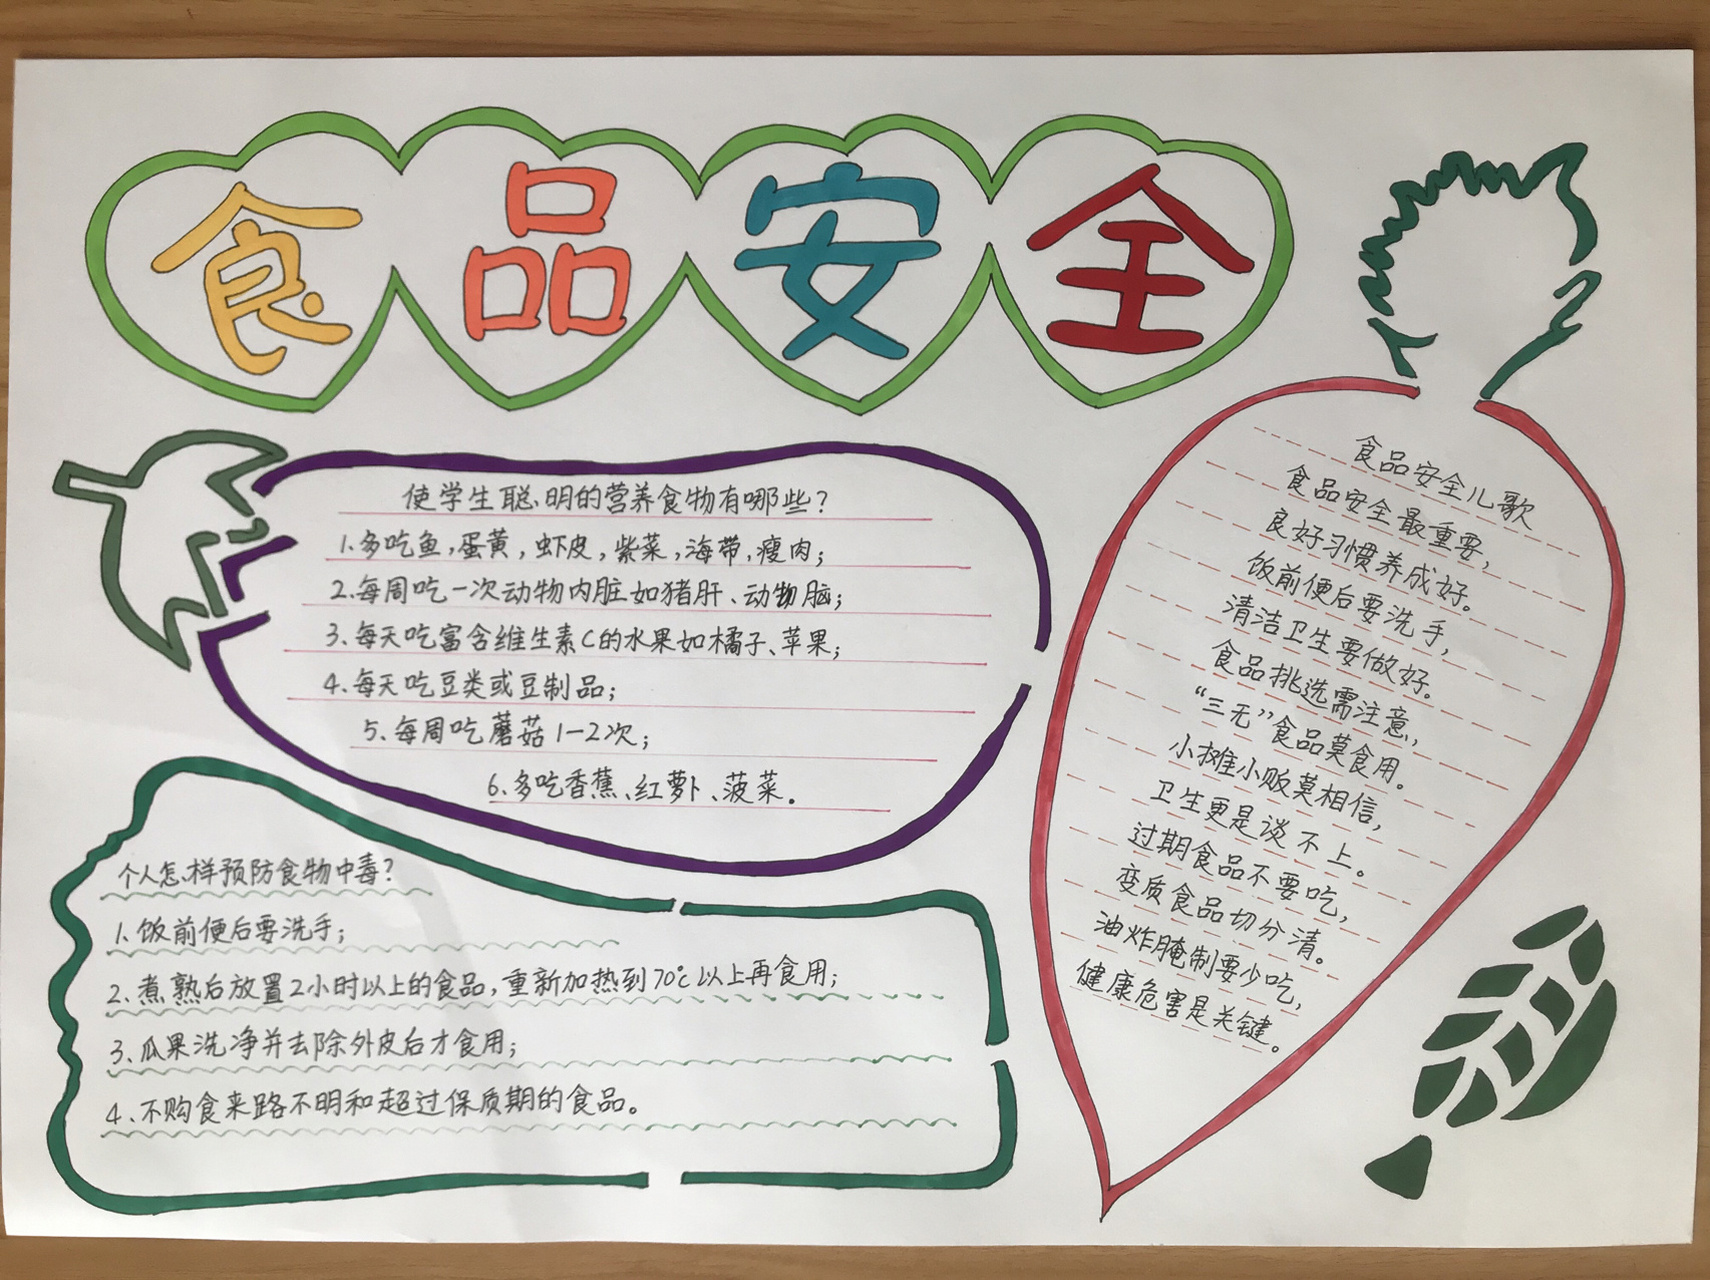 食品安全
使学生聪明的营养食物有哪些？
1.多吃鱼，蛋黄，虾皮，紫菜，海带，瘦肉；
2.每周吃一次动物内脏如猪肝、动物脑；
3.每天吃富含维生素C的水果如橘子、苹果；
4.每天吃豆类或豆制品；
5.每周吃蘑菇1-2次；
6.多吃香蕉、红萝卜、菠菜。
个人怎样预防食物中毒？
1.饭前便后要洗手；
2.煮熟后放置2小时以上的食品，重新加热到70℃以上再食用；
3.瓜果洗净并去除外皮后才食用；
4.不购食来路不明和超过保质期的食品。
食品安全儿歌
食品安全最重要，
良好习惯养成好。
饭前便后要洗手，
清洁卫生要做好。
食品挑选需注意，
“三无”食品莫食用。
小摊小贩莫相信，
卫生更是谈不上。
过期食品不要吃，
变质食品切分清。
油炸腌制要少吃，
健康危害是关键。